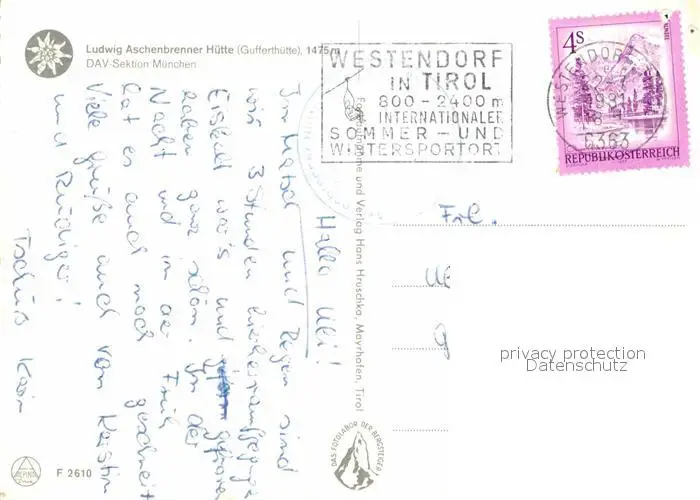 Ludwig Aschenbrenner Hütte (Gufferthütte), 1475m
DAV-Sektion München
WESTENDORF
IN TIROL
800 - 2400 m
INTERNATIONALER
SOMMER - UND
WINTERSPORTORT
4S
TIROL
REPUBLIK ÖSTERREICH
WESTENDORF
6363
Hallo Uli!
Im Matsch und Regen sind
wir 3 Stunden hierheraufgegangen
Eiskalt war's und gefroren
haben ganz schön. In der
Nacht und in der Früh
hat es auch noch geschneit
Viele Grüße auch von Kerstin
und Rüdiger!
Tschüß Karin
Farbaufnahme und Verlag Hans Hruschka, Mayrhofen, Tirol
Frl.
privacy protection
Datenschutz
DAS FOTOLABOR DER BERGSTEIGER
ALPINA
F 2610